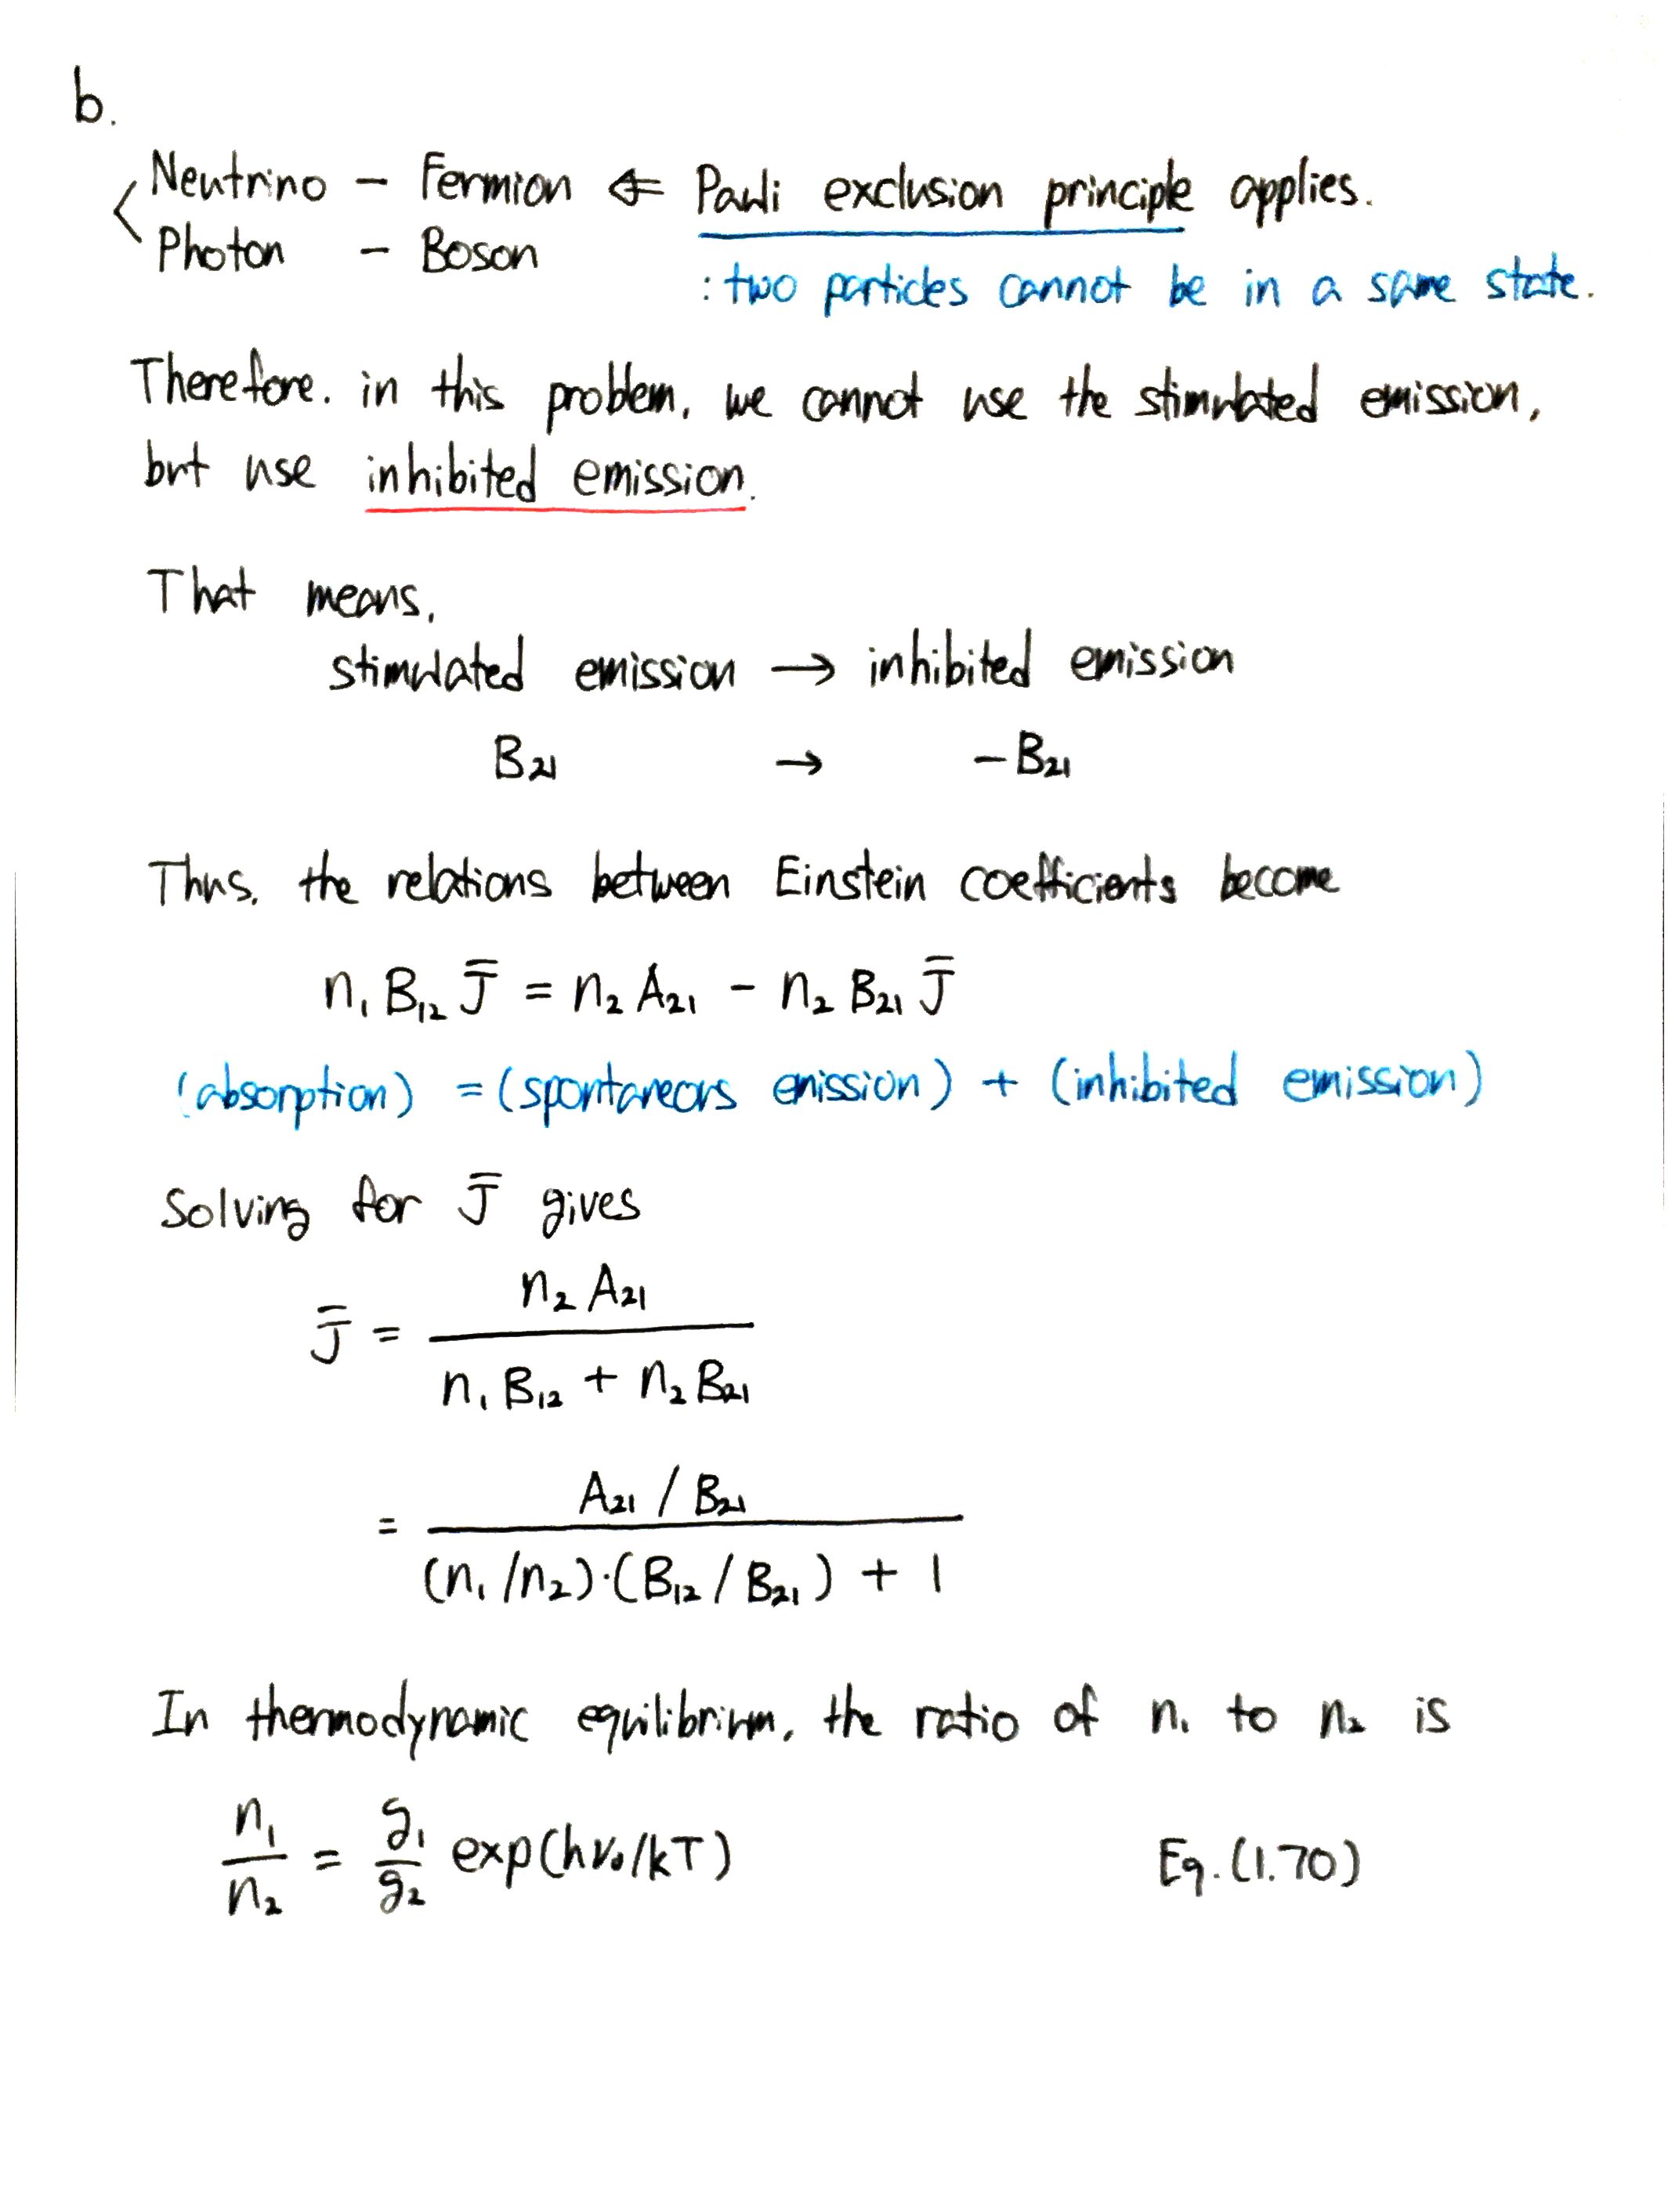 b.
Neutrino - Fermion ⇐ Pauli exclusion principle applies.
Photon - Boson
: two particles cannot be in a same state.
Therefore, in this problem, we cannot use the stimulated emission,
but use inhibited emission.
That means,
stimulated emission → inhibited emission
B₂₁ → -B₂₁
Thus, the relations between Einstein coefficients become
n₁ B₁₂ J̅ = n₂ A₂₁ - n₂ B₂₁ J̅
(absorption) = (spontaneous emission) + (inhibited emission)
Solving for J̅ gives
J̅ = n₂ A₂₁ / n₁ B₁₂ + n₂ B₂₁
= A₂₁ / B₂₁ / (n₁ / n₂)·(B₁₂ / B₂₁) + 1
In thermodynamic equilibrium, the ratio of n₁ to n₂ is
n₁/n₂ = g₁/g₂ exp(hν₀/kT) Eq. (1.70)